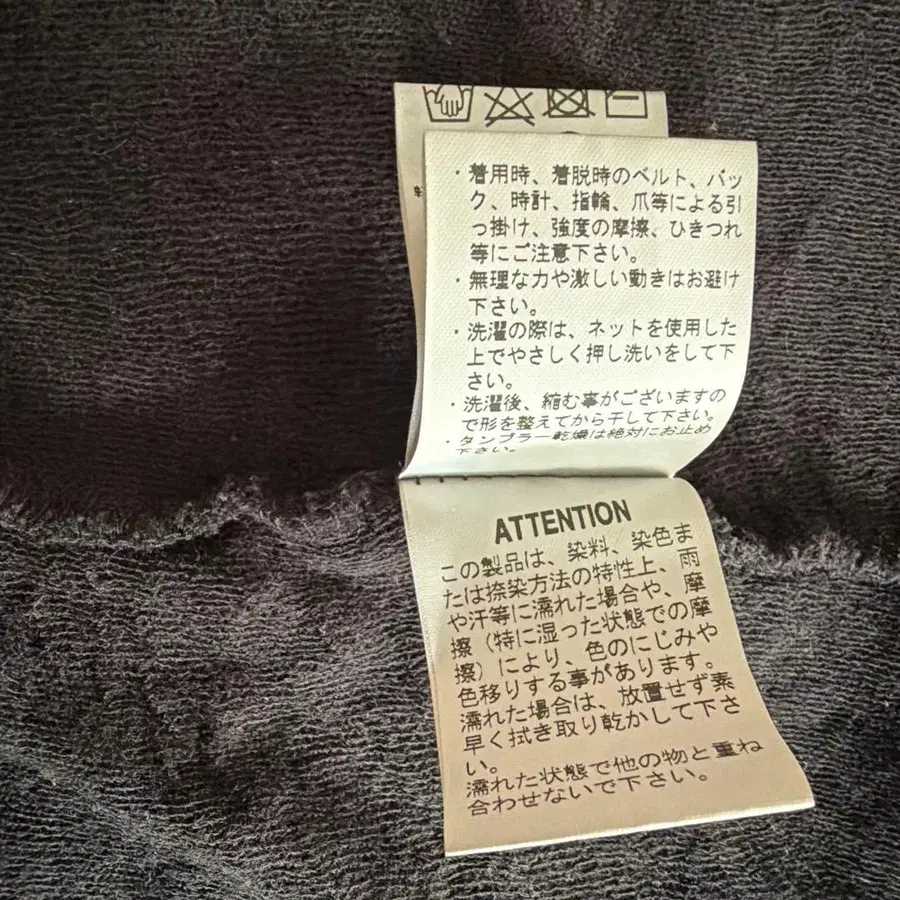 ・着用時、着脱時のベルト、バッ
ク、時計、指輪、爪等による引
っ掛け、強度の摩擦、ひきつれ
等にご注意下さい。
・無理な力や激しい動きはお避け
下さい。
・洗濯の際は、ネットを使用した
上でやさしく押し洗いをして下
さい。
・洗濯後、縮む事がございますの
で形を整えてから干して下さい。
・タンブラー乾燥は絶対にお止め
下さい。
ATTENTION
この製品は、染料、染色ま
たは捺染方法の特性上、雨
や汗等に濡れた場合や、摩
擦（特に湿った状態での摩
擦）により、色のにじみや
色移りする事があります。
濡れた場合は、放置せず素
早く拭き取り乾かして下さ
い。
濡れた状態で他の物と重ね
合わせないで下さい。